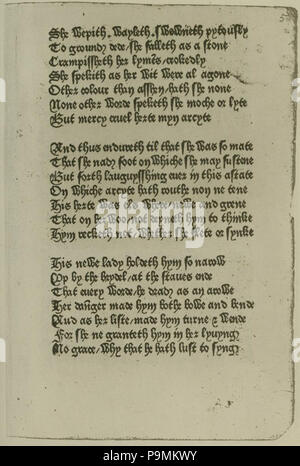 She wepith, wayleth, swowneth pytously
To grounde dede she falleth as a stone
Crampissheth her lymes crokedly
She spekith as her wit were al agone
Other colour than asshen hath she none
None other worde speketh she moche or lyte
But mercy cruel herte myn arcyte

And thus endureth til that she was so mate
That she nad foot on whiche she may sustene
But forth languysshing euer in this astate
On whiche arcyte hath routhe non ne tene
His herte was newe and grene
That on her woo not deyneth hym to thinke
Hym recketh not whether she flete or synke

His newe lady holdeth hym so narow
Vp by the brydel at the staues ende
That euery worde he dead as an arowe
Her danger made hym bothe bowe and bende
And as her liste made hym turne & wende
For she ne granteth hym in her lyuyng
No grace why that he hath lust to syng
alamy
www.alamy.com
P9MKWY